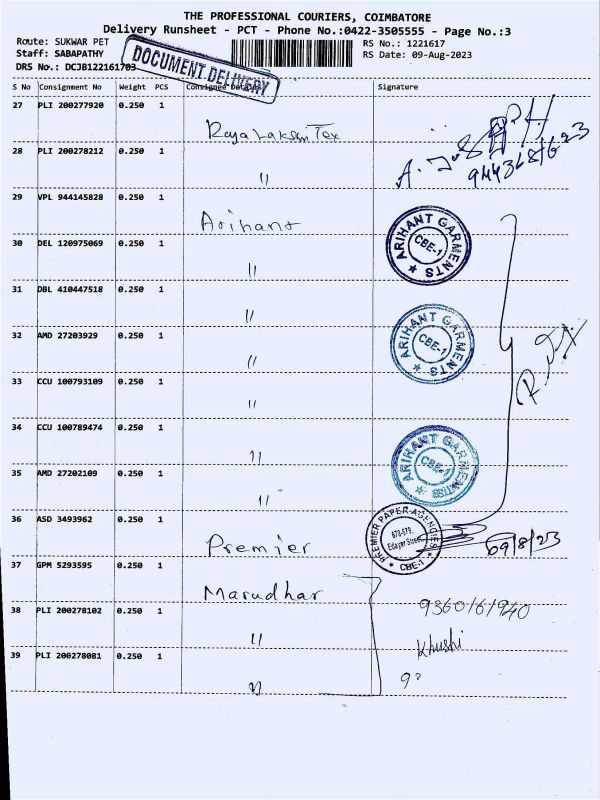 THE PROFESSIONAL COURIERS, COIMBATORE
Delivery Runsheet - PCT - Phone No.:0422-3505555 - Page No.:3
Route: SUKWAR PET
RS No.: 1221617
Staff: SABAPATHY
RS Date: 09-Aug-2023
DRS No.: DCJB122161703
DOCUMENT DELIVERY
S No Consignment No Weight PCS Consignee Details Signature
27 PLI 200277920 0.250 1
28 PLI 200278212 0.250 1 "
29 VPL 944145828 0.250 1 Arihant
ARIHANT GARMENTS ★ CBE-1
30 DEL 120975069 0.250 1 "
31 DBL 410447518 0.250 1 "
ARIHANT GARMENTS ★ CBE-1
32 AMD 27203929 0.250 1 "
33 CCU 100793109 0.250 1 "
34 CCU 100789474 0.250 1 "
ARIHANT GARMENTS ★ CBE-1
35 AMD 27202109 0.250 1 "
36 ASD 3493962 0.250 1 Premier
PREMIER PAPER AGENCIES ★ CBE-1
09/8/23
37 GPM 5293595 0.250 1 Marudhar
9360161940
38 PLI 200278102 0.250 1 "
Khushi
39 PLI 200278081 0.250 1 "